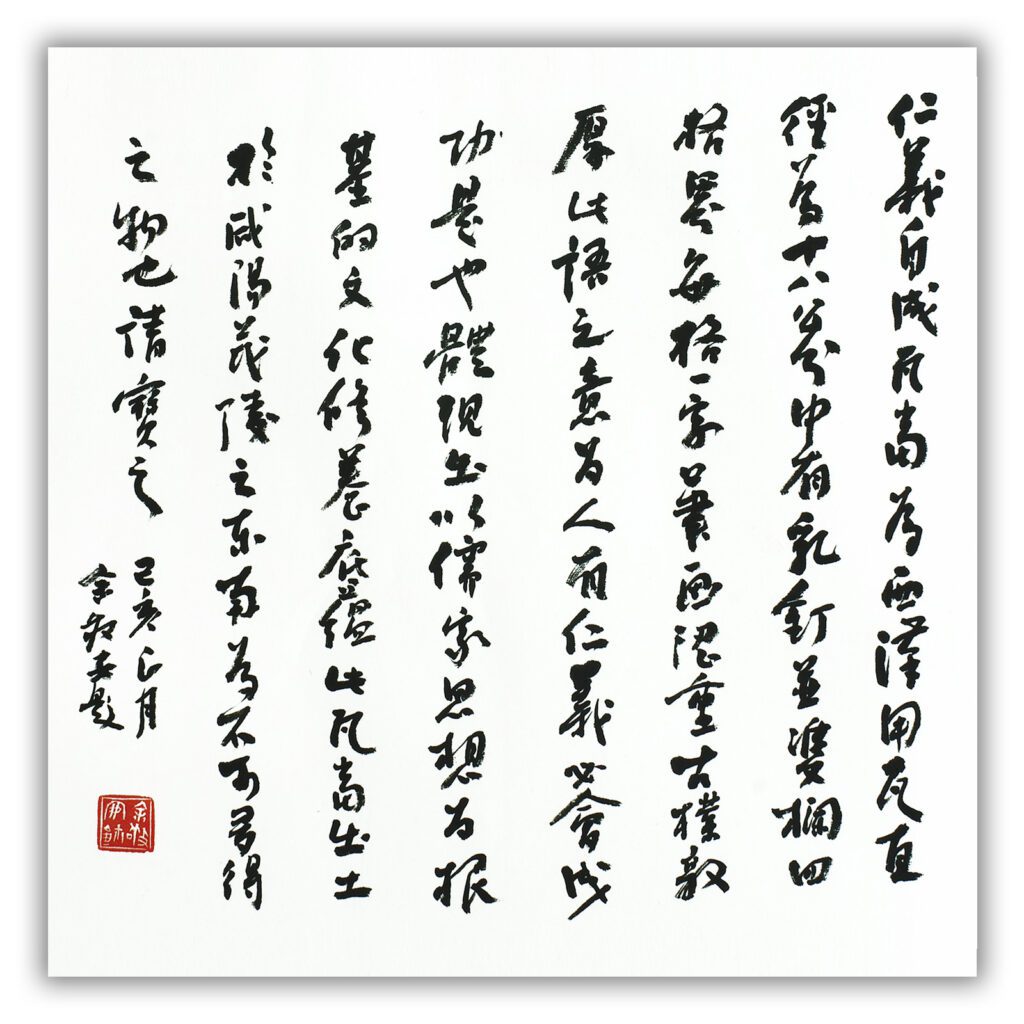 仁義自成瓦當為西漢用瓦直
徑為十八公分中有乳釘並雙欄四
格界每格一字書畫濃重古樸敦
厚此語之意為人有仁義必會成
功是也體現出以儒家思想為根
基的文化修養底蘊此瓦當出土
於咸陽茂陵之東南為不可多得
之物也請寶之
己亥正月
題